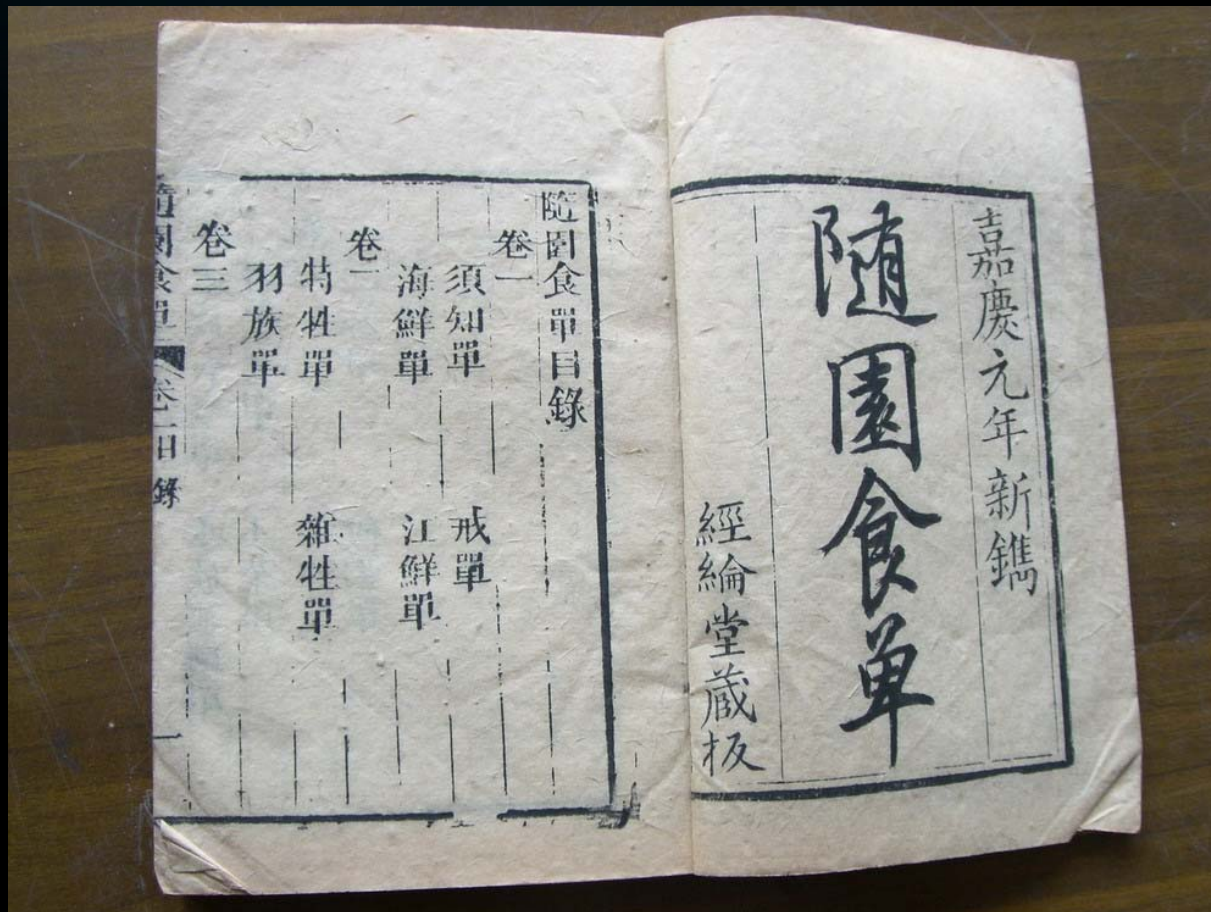 嘉慶元年新鐫
随園食单
經綸堂蔵板
隨園食單目錄
卷一
須知單 戒單
海鮮單 江鮮單
卷二
特牲單 雜牲單
羽族單
卷三
隨園食單 卷一目錄 一